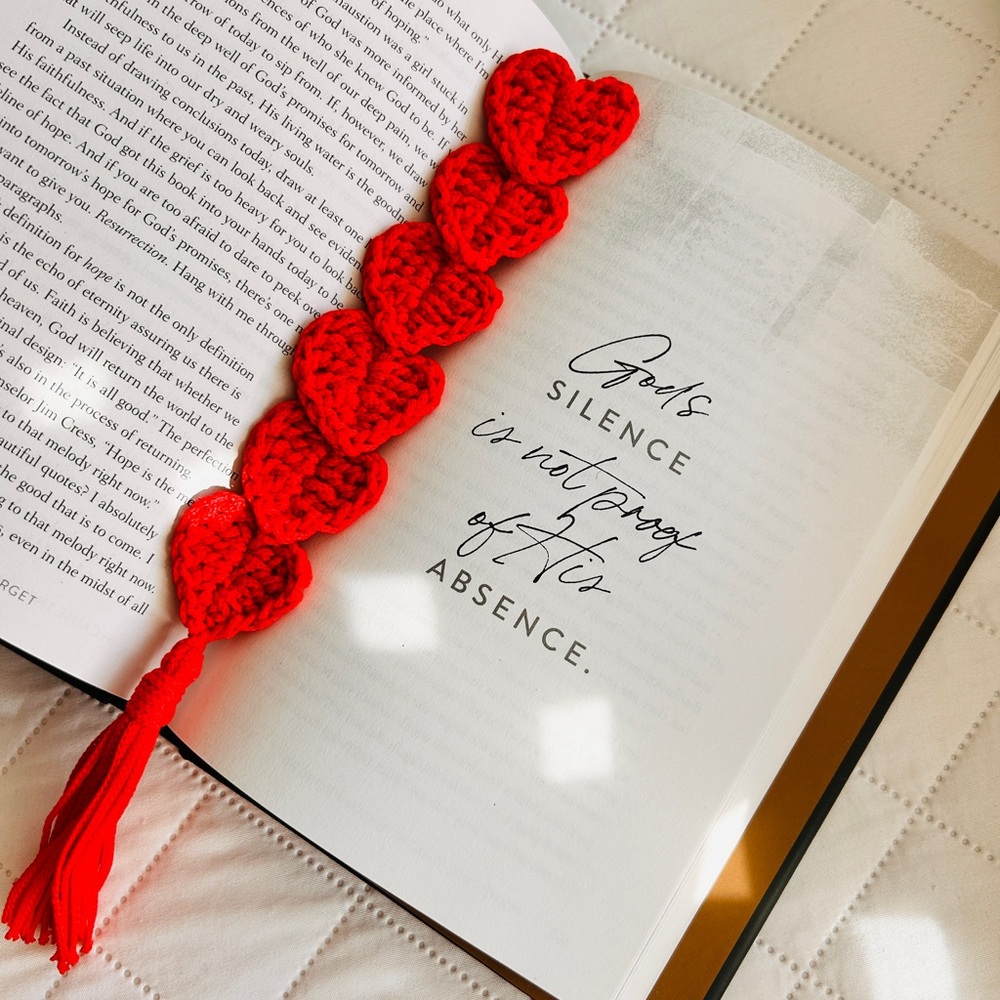 what only
the place where
of hoping."
haustion was a girl stuck in
of God was more informed by her
ences of who she knew God to be. If
tions from the well of our deep pain, we
row of today to sip from. If, however, we draw
in the deep well of God's promises for tomorrow and
thfulness to us in the past, His living water is the goodn
will seep life into our dry and weary soul.
Instead of drawing conclusions today, draw at least one
from a past situation where you can look back and see eviden
His faithfulness. And if the grief is too heavy for you to look back
see the fact that God got this book into your hands today to be
line of hope. And if you are too afraid to dare to peek over
into tomorrow's hope for God's promises, there's one
want to give you. Resurrection. Hang with me through
paragraphs.
definition for hope is not the only definition
is the echo of eternity assuring us there is
d of us. Faith is believing that whether we
heaven. God will return the world to the
inal design: "It is all good." The perfection
s also in the process of returning.
nselor Jim Cress, "Hope is the me
to that melody right now."
autiful quotes? I absolutely
the good that is to come. I
g to that melody right now.
s, even in the midst of all
RGET
God's
SILENCE
is not proof
of His
ABSENCE.